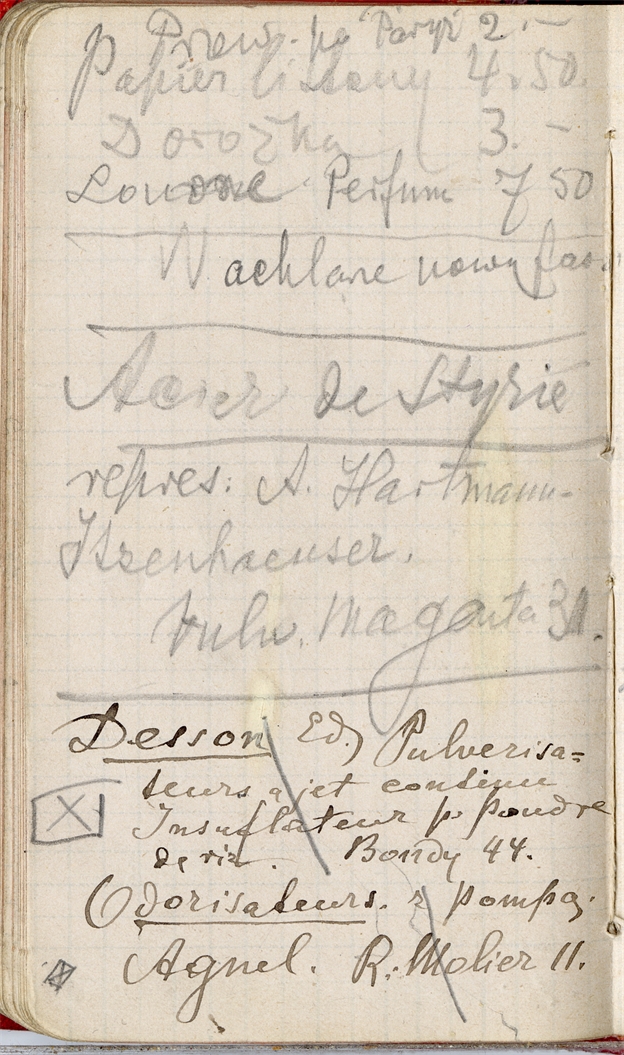 p Przew. po Paryż 2.—
Papier listowy 4.50.
Dorożka 3.—
Louvre Perfum 7 50
Wachlarze nowy fas.
Acier de Styrie
repres: A. Hartmann-
Itzenhaeuser.
Bulw. Magenta 31.
Desson Ed) Pulverisa=
teurs a jet continu
Insuflateur p. Poudre
de riz. Bondy 44.
Odorisateurs. z pompą.
Agnel. R. Molier 11.